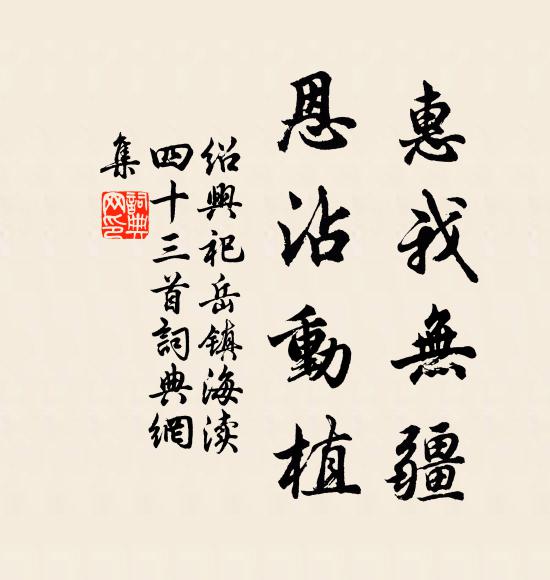 惠我無疆
恩沾動植
紹興祀岳鎮海渎
四十三首詞典網
集
詞典
网印